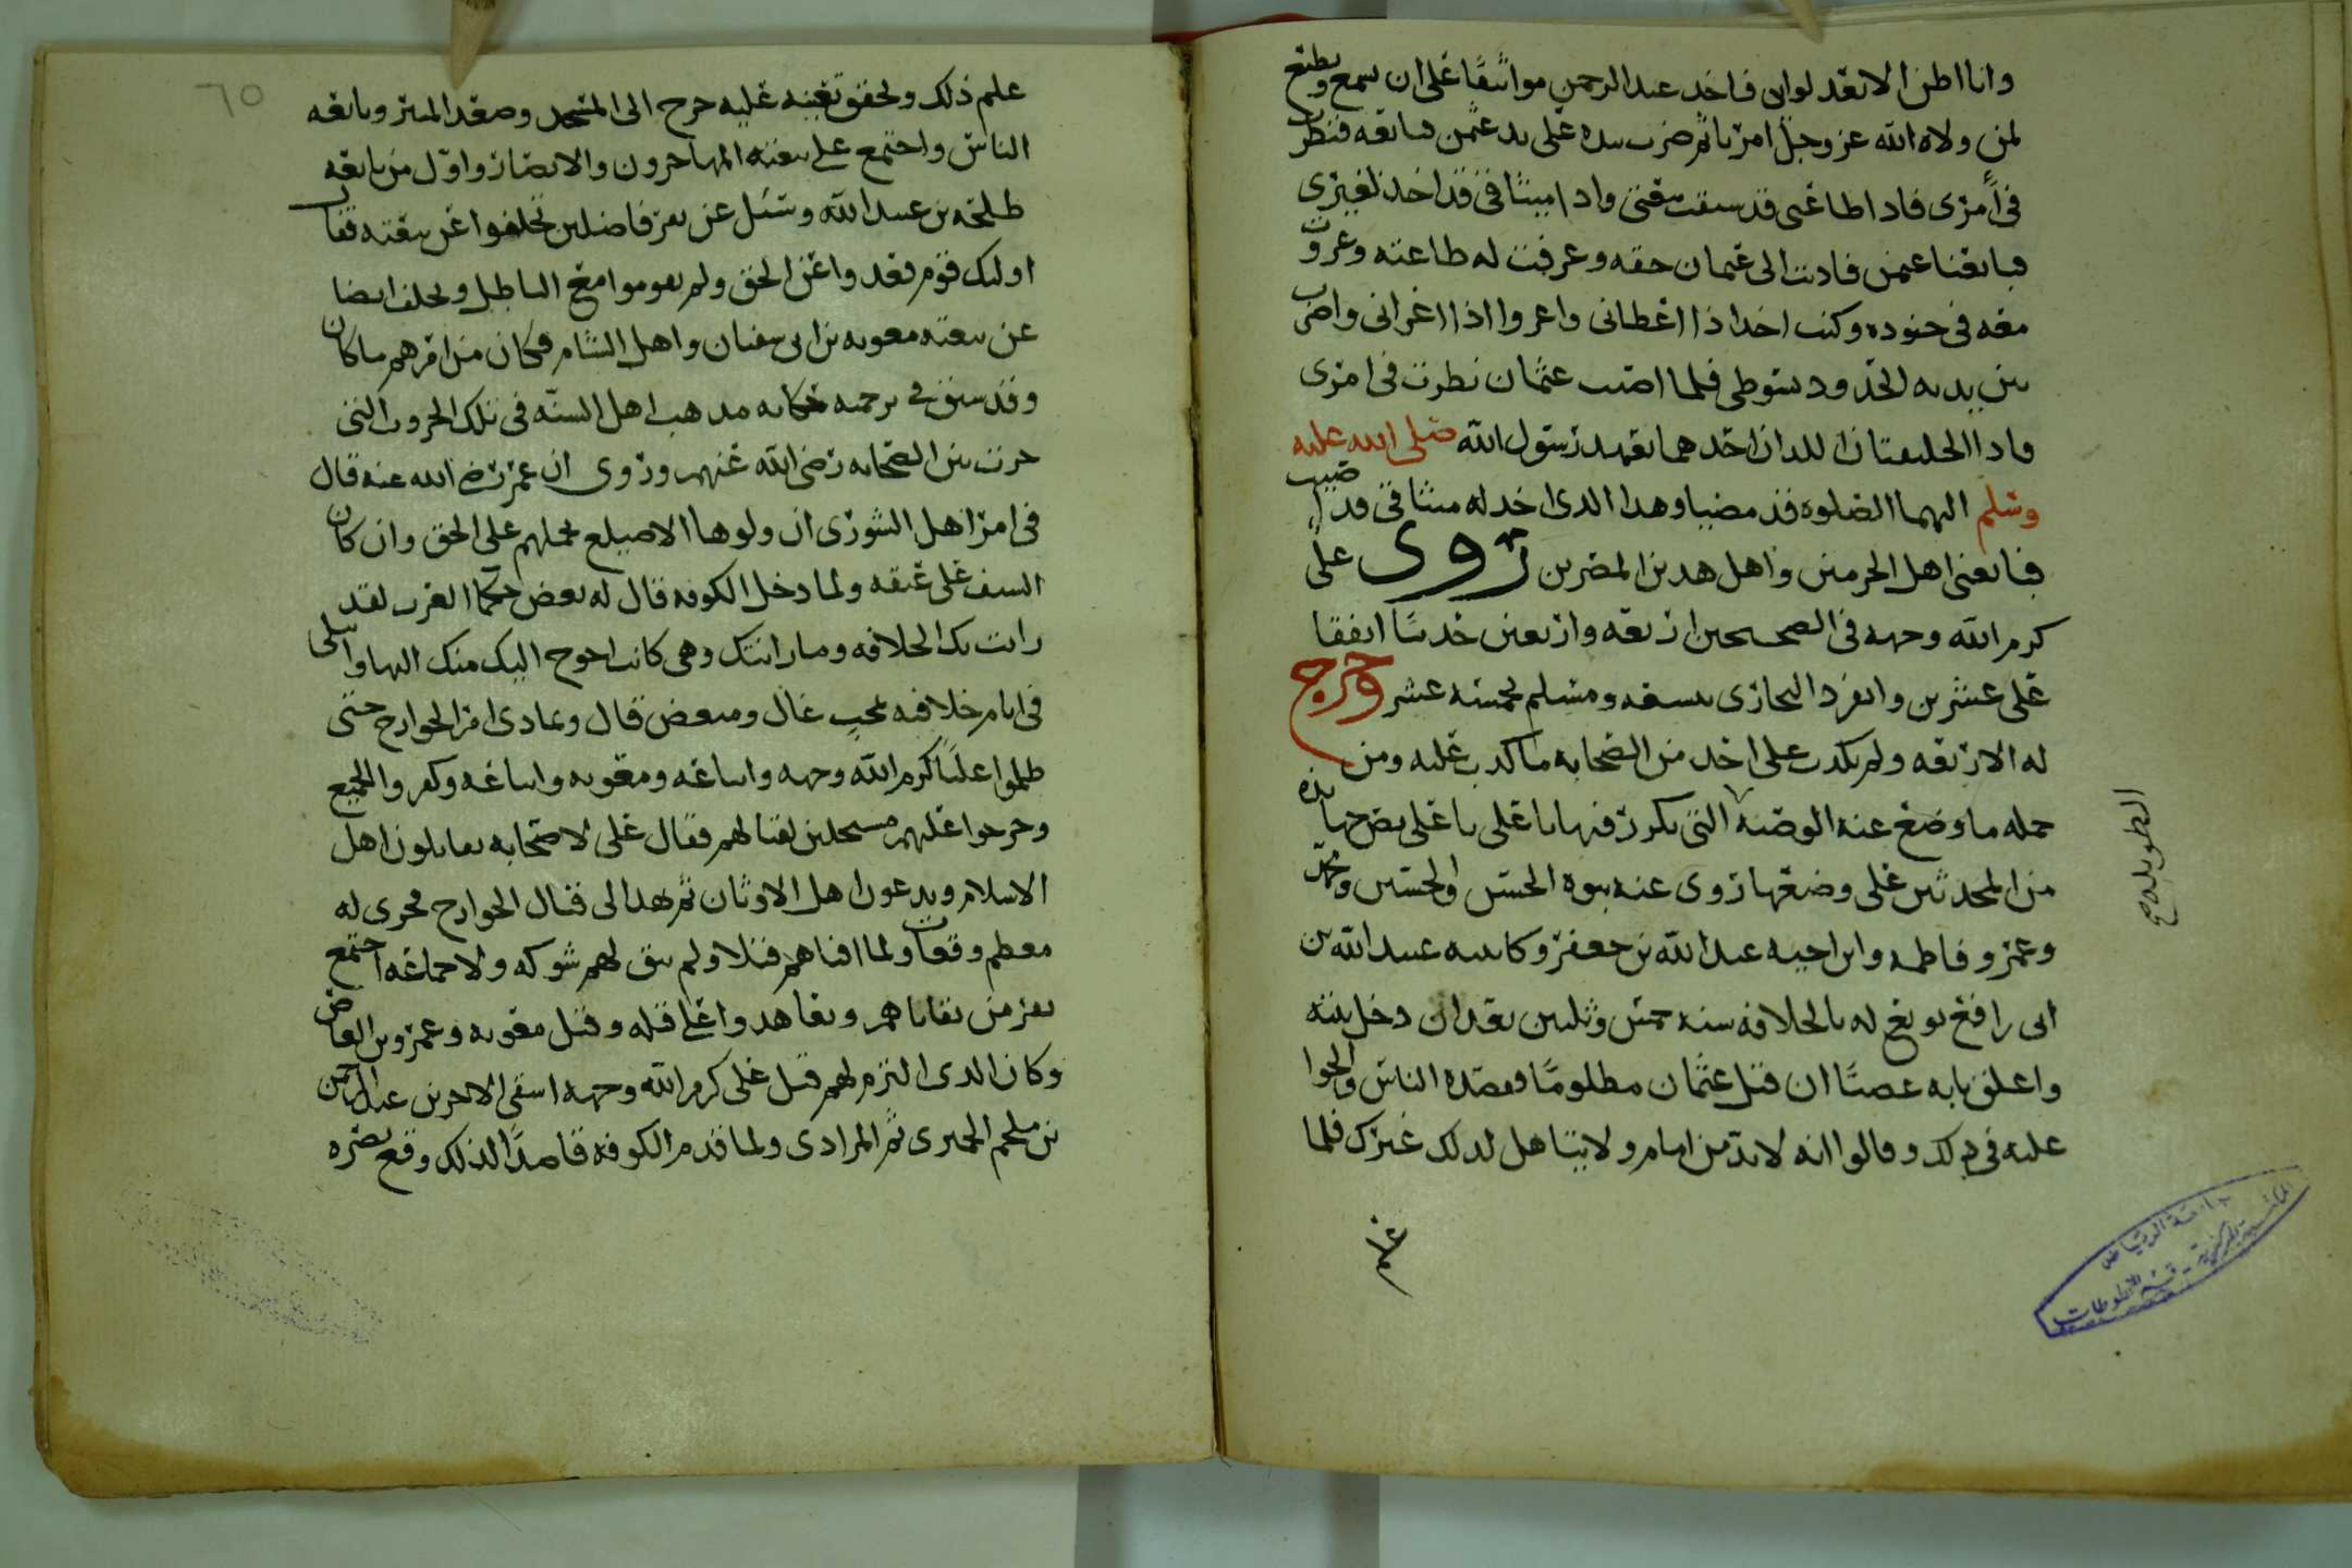 وانا اظن الا يعدلوا بى فاخذ عبد الرحمن مواثيقا على ان نسمع ونطيع
لمن ولاه الله عز وجل امرنا ثم ضرب بيده على يد عثمن فبايعه فنظرت
فى أمرى فاذا طاعتى قد سبقت بيعتى واذا ميثاقى قد اخذ لغيرى
فبايعنا عثمن فاديت الى عثمان حقه وعرفت له طاعته وغزوت
معه فى جنوده وكنت اخذ اذا اعطانى واغزوا اذا اغزانى واضرب
بين يديه الحدود بسوطى فلما اصيب عثمان نظرت فى امرى
فاذا الخليفتان اللذان اخذهما بعهد رسول الله صلى الله عليه
وسلم اليهما الصلوة قد مضيا وهذا الذى اخذ له ميثاقى قد اصيب
فبايعنى اهل الحرمين واهل هذين المصرين روى على
كرم الله وجهه فى الصحيحين اربعه واربعين حديثا اتفقا
على عشرين وانفرد البخارى بتسعه ومسلم بخمسه عشر وخرج
له الاربعه ولم يكذب على احد من الصحابه ما كذب عليه ومن
جمله ما وضع عنه الوصيه التى يكرر فيها يا على يا على نص جهابذه
الطويله صح
من المحدثين على وضعها روى عنه بنوه الحسن والحسين ومحمد
وعمر وفاطمه وابن اخيه عبد الله بن جعفر وكاتبه عبيد الله بن
ابى رافع بويع له بالخلافه سنه خمس وثلثين بعد ان دخل بيته
واغلق بابه عصبًا ان قتل عثمان مظلومًا فقصده الناس والحوا
عليه فى ذلك وقالوا انه لا بد من امام ولا يتاهل لذلك غيرك فلما
علم
جامعة الرياض
المكتبة المركزية - قسم المخطوطات
٦٥
علم ذلك وتحقق تعينه عليه خرج الى المسجد وصعد المنبر وبايعه
الناس واجتمع على بيعته المهاجرون والانصار واول من بايعه
طلحه بن عبيد الله وسئل عن نفر فاضلين تخلفوا عن بيعته فقال
اوليك قوم قعدوا عن الحق ولم يقوموا مع الباطل وتخلف ايضا
عن بيعته معويه بن ابى سفيان واهل الشام فكان من امرهم ما كان
وقد سبق فى ترجمه حكايه مذهب اهل السنه فى تلك الحروب التى
جرت بين الصحابه رضى الله عنهم وروى ان عمر رضى الله عنه قال
فى امر اهل الشورى ان ولوها الاصيلع يحملهم على الحق وان كان
السيف على عنقه ولما دخل الكوفه قال له بعض حكما العرب لقد
زانت بك الخلافه وما زانتك وهى كانت احوج اليك منك اليها وابتلى
فى ايام خلافته بمحب غال ومبغض قال وتمادى امر الخوارج حتى
ظلموا عليًا كرم الله وجهه واتباعه ومعويه واتباعه وكفروا الجميع
وخرجوا عليهم مستحلين لقتالهم فقال على لاصحابه يقاتلون اهل
الاسلام ويدعون اهل الاوثان ثم نهد الى قتال الخوارج فجرى له
معهم وقعات ولما افناهم قتلا ولم يبق لهم شوكه ولا جماعه اجتمع
نفر من بقاياهم وتعاهدوا على قتله وقتل معويه وعمرو بن العاص
وكان الذى التزم لهم قتل على كرم الله وجهه اشقى الاخرين عبد الرحمن
بن ملجم الحميرى ثم المرادى ولما قدم الكوفه قاصدًا لذلك وقع بصره